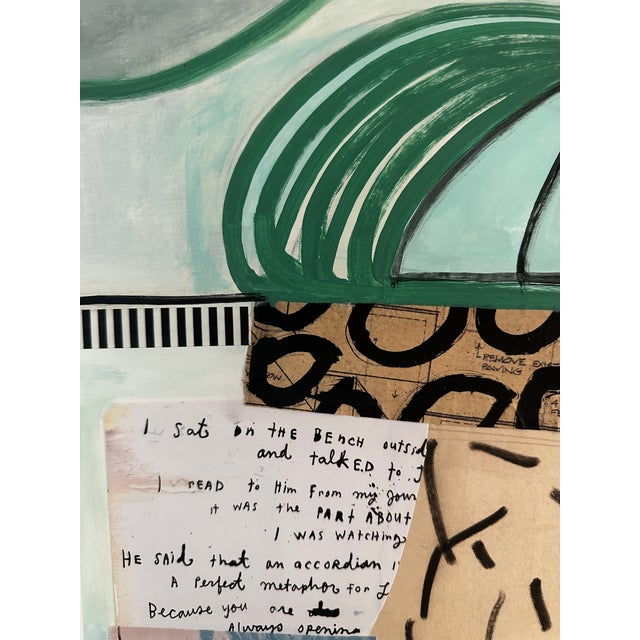 REMOVE EXIS
PAVING
I sat on THE BENCH outsid
and talKED to J
I READ to HIM FROM my Jour
it WAS the PART ABOUT
I WAS WATCHING
HE SAID that an accordian
A Perfect metaphor for L
Because you are
Always opening